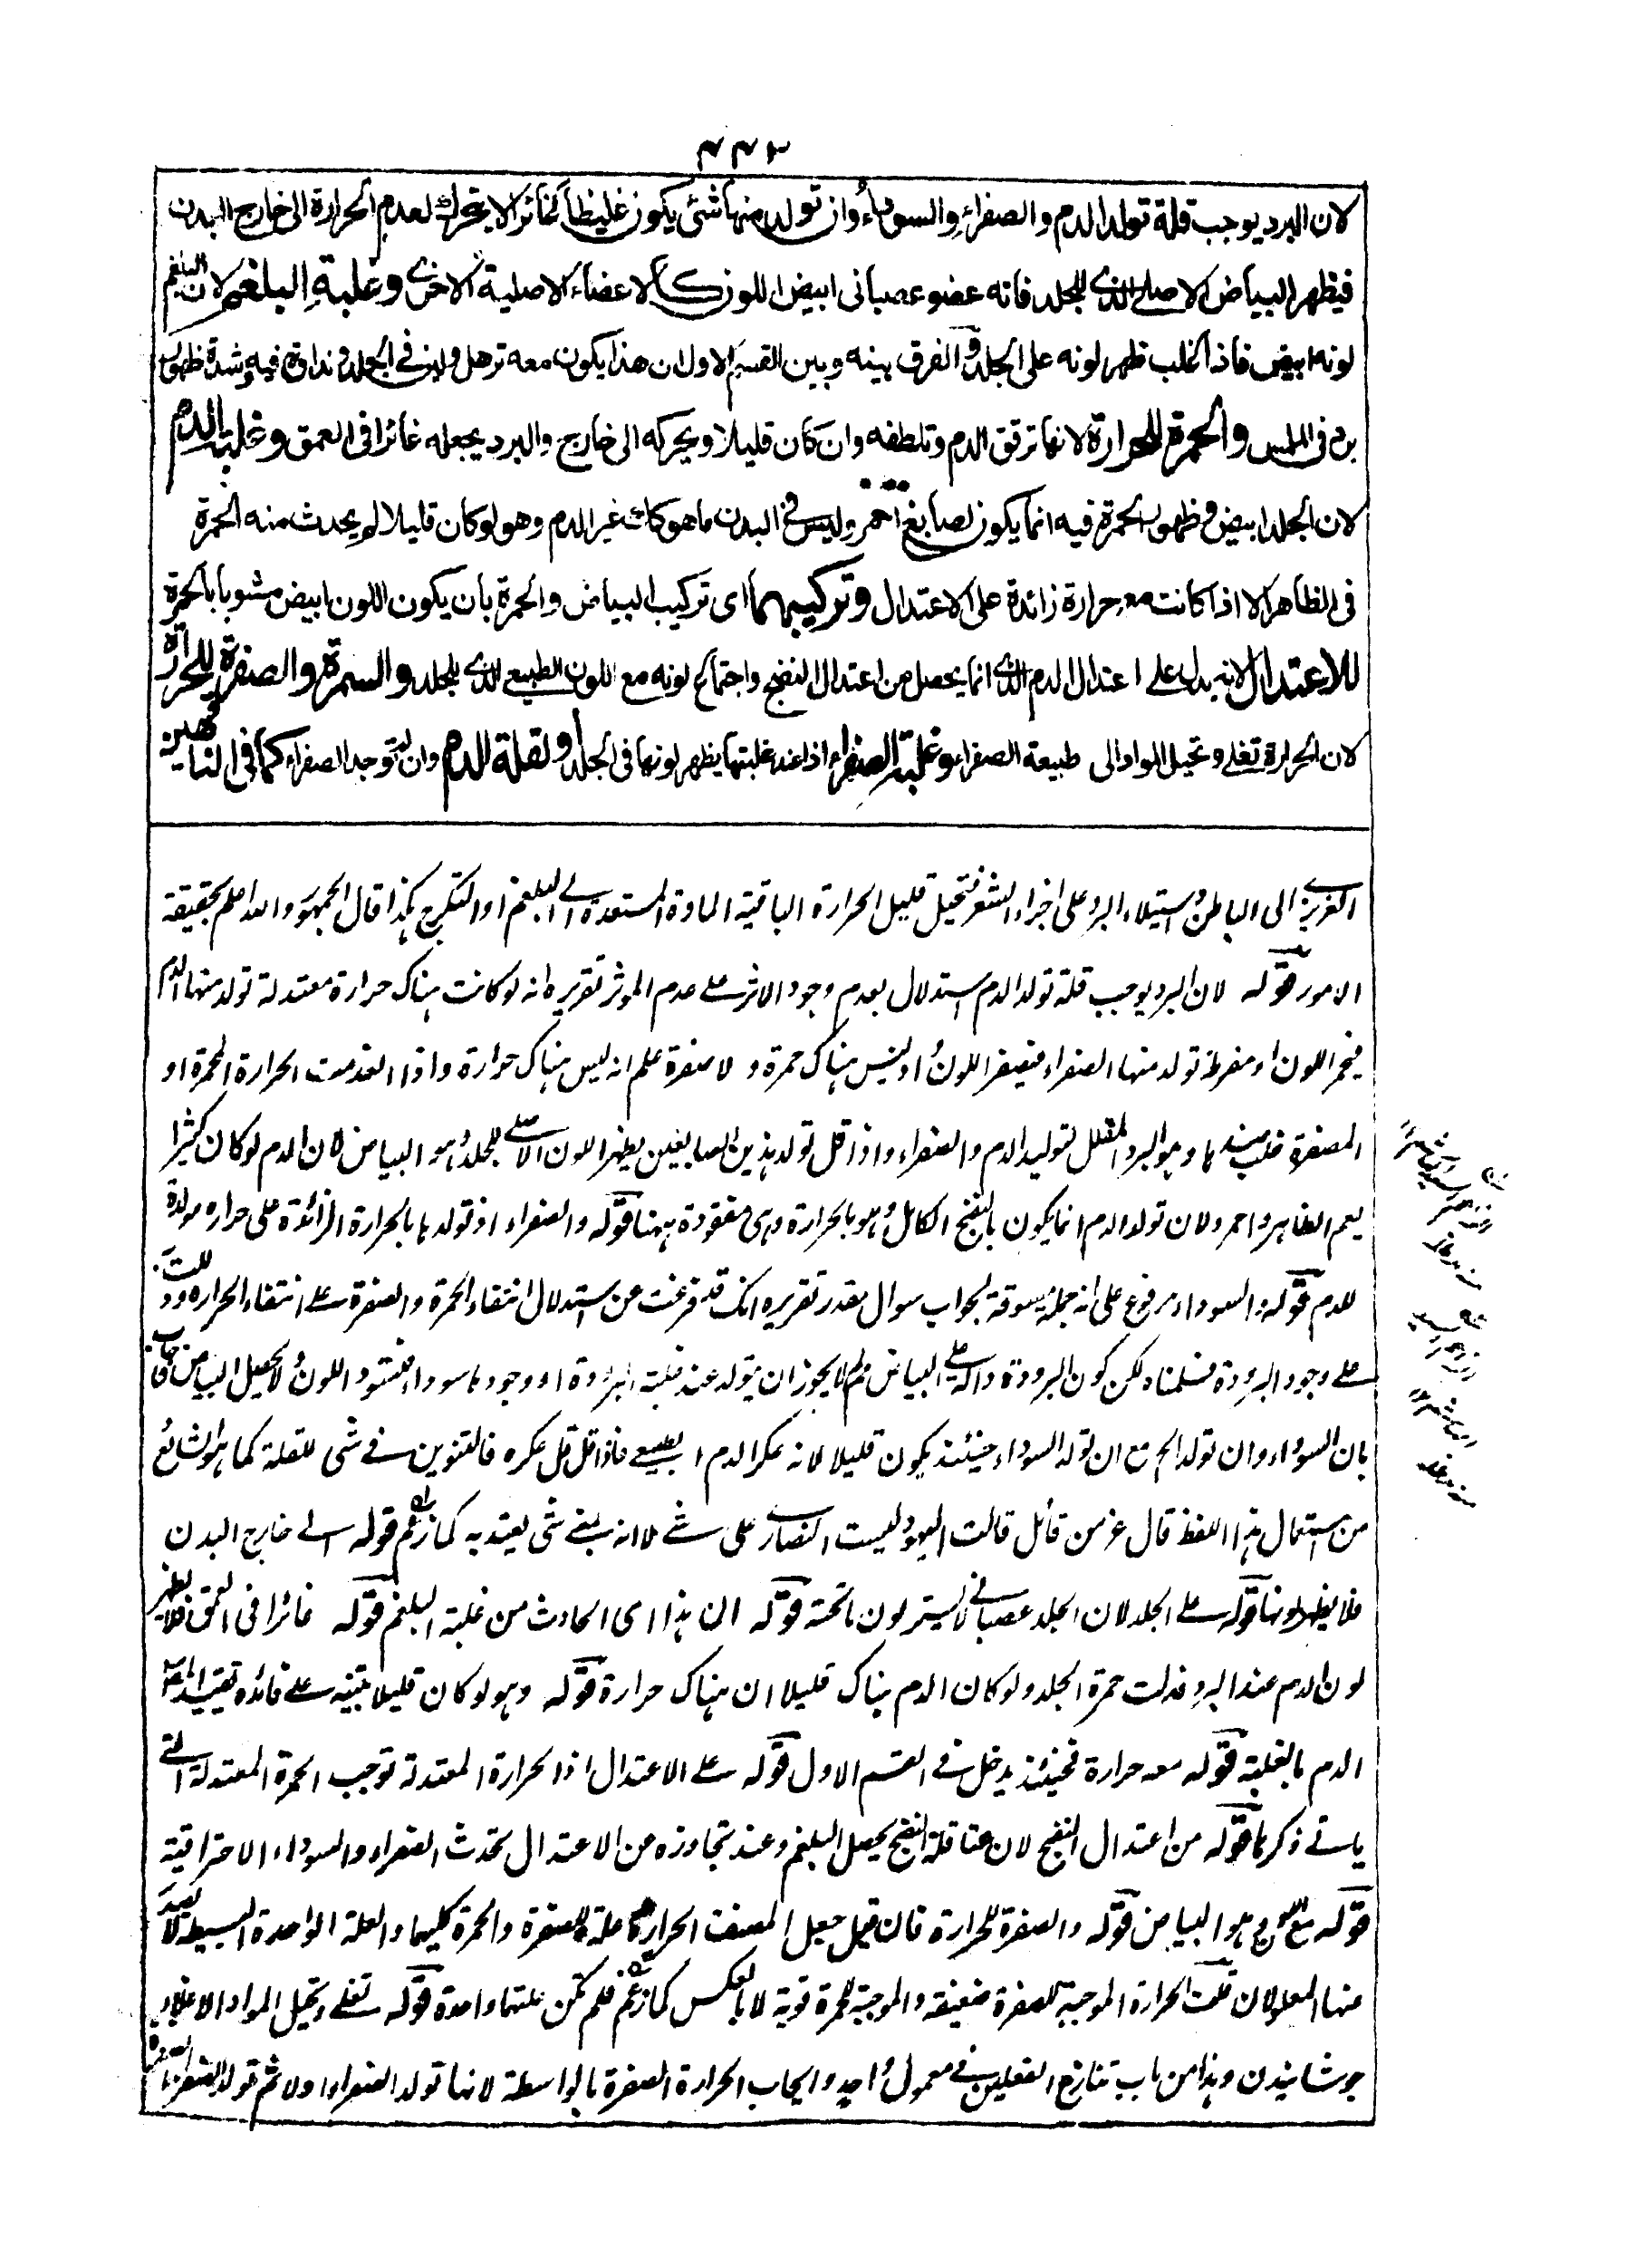 ۲۴۳
لان البرد يوجب قلة تولد الدم والصفراء والسوداء وان تولد منها شئ يكون غليظا غائرا لا يتحرك لعدم الحرارة الى خارج البدن
فيظهر البياض الاصلي الذي للجلد فانه عضو عصباني ابيض اللون كالاعضاء الاصلية الاخرى وغلبة البلغم لان البلغم
لونه ابيض فاذا غلب ظهر لونه على الجلد والفرق بينه وبين القسم الاول ان هذا يكون معه ترهل ولين في الجلد ونداوة فيه وشدة ظهور
برد في الملمس والحمرة للحرارة لانها ترقق الدم وتلطفه وان كان قليلا ويحركه الى خارج والبرد يجعله غائرا في العمق وغلبة الدم
لان الجلد ابيض وظهور الحمرة فيه انما يكون لصابغ احمر وليس في البدن ما هو كك غير الدم وهو لو كان قليلا لم يحدث منه الحمرة
في الظاهر الا اذا كانت معه حرارة زائدة على الاعتدال وتركيبهما اى تركيب البياض والحمرة بأن يكون اللون ابيض مشوبا بالحمرة
للاعتدال لانه يدل على اعتدال الدم الذي انما يحصل من اعتدال النضج واجتماع لونه مع اللون الطبيعي الذي للجلد والسمرة والصفرة للحرارة
لان الحرارة تغلى وتحيل المواد الى طبيعة الصفراء وغلبة الصفراء اذ عند غلبتها يظهر لونها في الجلد ولقلة الدم وان لم توجد الصفراء كما في الناقهين
الغريزى الى الباطن واستيلاء البرد على اجزاء الشعر فتحيل قليل الحرارة الباقية المادة المستعدة الى البلغم او التكرج هكذا قال الجمهور والله اعلم بحقيقة
الامور قوله لان البرد يوجب قلة تولد الدم استدلال بعدم وجود الاثر على عدم الموثر تقريره انه لو كانت هناك حرارة معتدلة تولد منها الدم
فيحمر اللون او مفرطة تولد منها الصفراء فيصفر اللون واذ ليس هناك حمرة ولا صفرة علم انه ليس هناك حرارة واذا انعدمت الحرارة المحمرة او
المصفرة غلب ضدها وهو البرد المقلل لتوليد الدم والصفراء واذا قل تولد هذين الصابغين يظهر اللون الاصلى للجلد وهو البياض لان الدم لو كان كثيرا
يعم الظاهر واحمر ولان تولد الدم انما يكون بالنضج الكامل وهو بالحرارة وهى مفقودة ههنا قوله والصفراء اذ تولدها بالحرارة الزائدة على حرارة مولدة
للدم قوله والسوداء مرفوع على انه جملة مسوقة لجواب سوال مقدر تقريره انك قد فرغت عن استدلال انتفاء الحمرة والصفرة على انتفاء الحرارة ودللت
على وجود البرودة فسلمناه لكن كون البرودة دالة على البياض لم لا يجوز ان يتولد عند غلبة البرودة او وجودها سوداء فتسود اللون ولا يحصل البياض فاجاب
بان السوداء وان تولد الخ مع ان تولد السوداء حينئذ يكون قليلا لانه عكر الدم الطبيعى فاذا قل قل عكره فالتنوين فى شى للقلة كما هو الشائع
من استعمال هذا اللفظ قال عز من قائل قالت اليهود ليست النصارى على شئ لا انه بمعنى شى يعتد به كما زعم قوله الى خارج البدن
فلا يظهر لونها قوله على الجلد لان الجلد عصبانى لا يستر لون ما تحته قوله ان هذا اى الحادث من غلبة البلغم قوله غائرا فى العمق فلا يظهر
لون الدم عند البرد فدلت حمرة الجلد ولو كان الدم هناك قليلا ان هناك حرارة قوله وهو لو كان قليلا تنبيه على فائدة تقييد
الدم بالغلبة قوله معه حرارة فحينئذ يدخل فى القسم الاول قوله على الاعتدال اذ الحرارة المعتدلة توجب الحمرة المعتدلة التى
ياتى ذكرها قوله من اعتدال النضج لان عند قلة النضج يحصل البلغم وعند تجاوزه من الاعتدال تحدث الصفراء والسوداء الاحتراقية
قوله مع اللون هو البياض قوله والصفرة للحرارة فان قيل جعل المصنف الحرارة علة للصفرة والحمرة كليهما والعلة الواحدة البسيطة لا يصدر
منها المعلولان قلت الحرارة الموجبة للصفرة ضعيفة والموجبة للحمرة قوية لا بالعكس كما زعم فلم تكن علتهما واحدة قوله تغلى وتحيل المواد الاغلاء
جوشانيدن وهذا من باب تنازع الفعلين فى معمول واحد وايجاب الحرارة الصفرة بالواسطة لانها تولد الصفراء اولا ثم تولد الصفراء